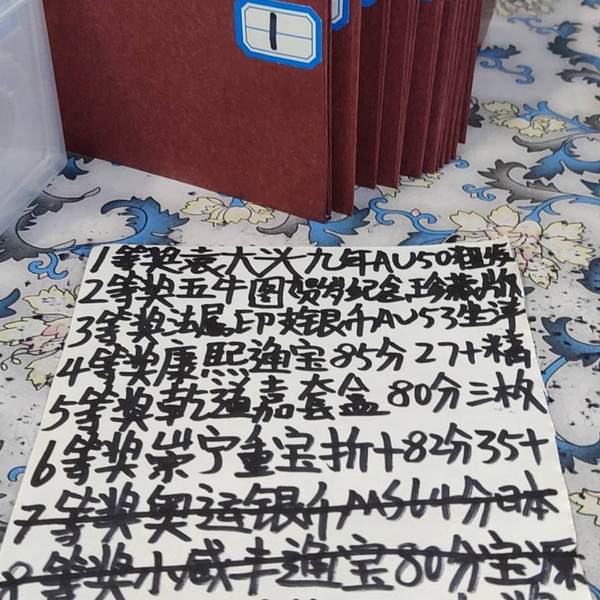 1
1等奖袁大头九年AU50粗发
2等奖五牛图贺岁纪念珍藏册
3等奖法属印支银币AU53坐洋
4等奖康熙通宝85分27+精
5等奖乾道嘉套盒80分三枚
6等奖崇宁重宝折十82分35+
7等奖奥运银币MS64分日本
8等奖小咸丰通宝80分宝源